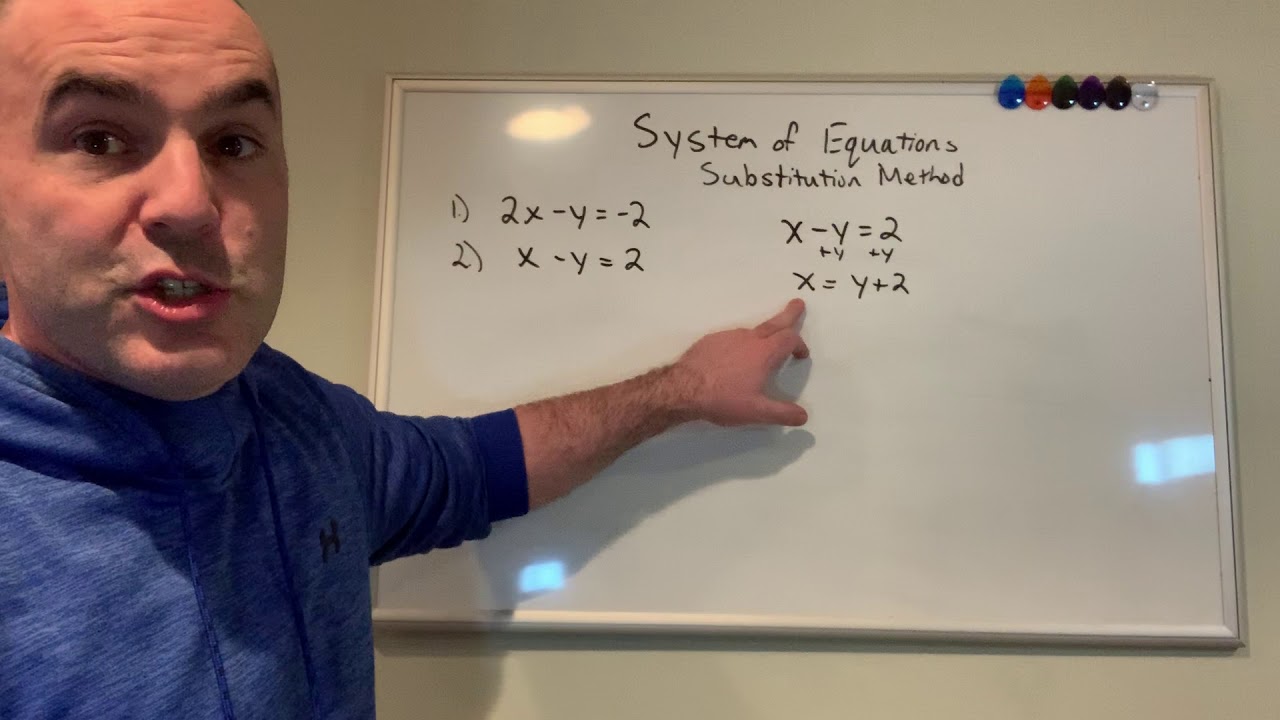 System of Equations
Substitution Method
1.) 2x - y = -2
2.) x - y = 2
x - y = 2
+y +y
x = y + 2